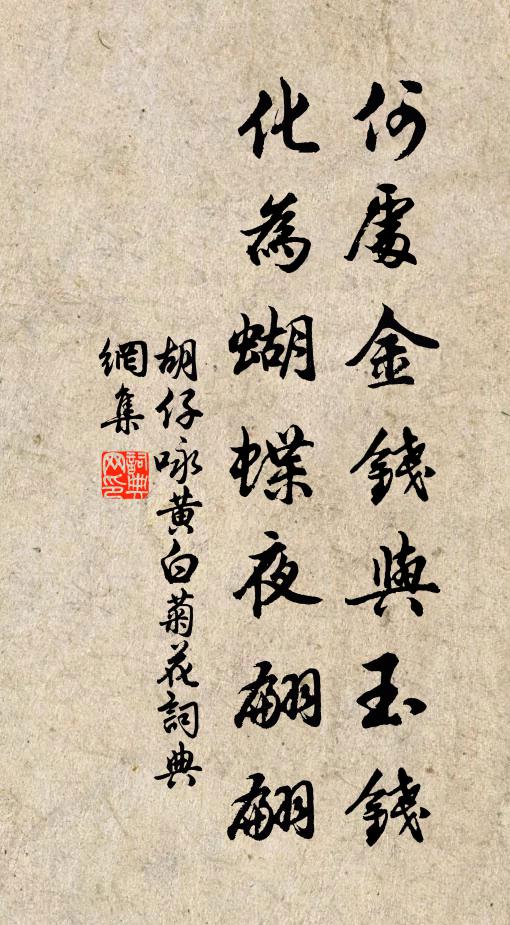 何處金錢與玉錢
化為蝴蝶夜翩翩
胡仔咏黃白菊花詞典
網集
詞典
网印